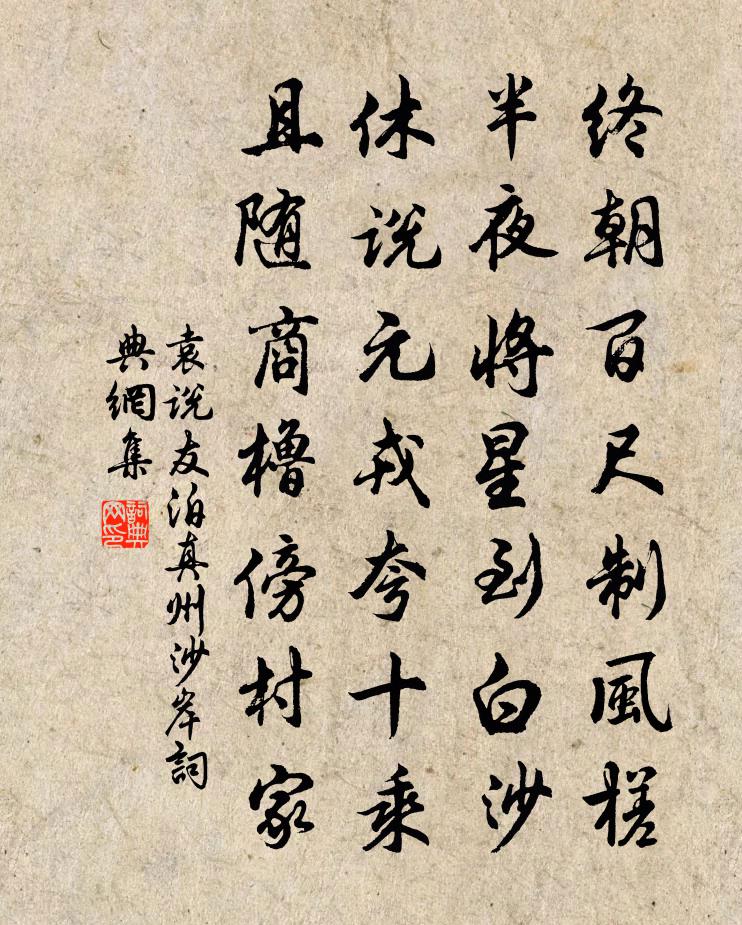 终朝百尺制風槎
半夜將星到白沙
休说元戎夸十乘
且随商櫓傍村家
袁说友泊真州沙岸詞
典網集
詞典
网印